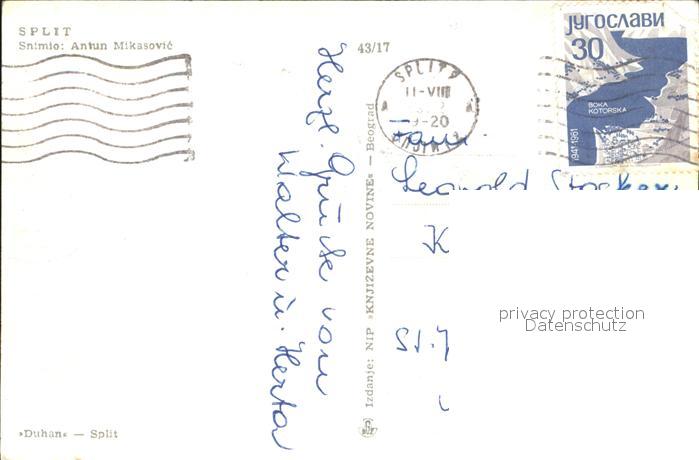 SPLIT
Snimio: Antun Mikasović
43/17
Herzl. Grüße von
Walter u. Herta
Izdanje: NIP »KNJIŽEVNE NOVINE« — Beograd
»Duhan« — Split
SPLIT 2
11-VIII
-20
Fam.
Leopold
K
St. J
ЈУГОСЛАВИ
30
BOKA
KOTORSKA
1941-1961
privacy protection
Datenschutz